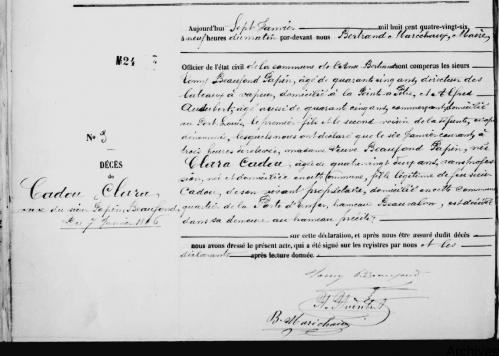 Aujourdhui Sept Janvier mil huit cent quatre-vingt-six
à neuf heures du matin par-devant nous Bertrand Marchaux, Maire,
N 24
Officier de l'état civil de la commune de l'Anse Bertrand ont comparus les sieurs
Beaufond Papin, âgé de quarante cinq ans, directeur des
bateaux à vapeur, domicilié à la Pointe à Pitre, et Alfred
Audubert, âgé aussi de quarante cinq ans, commerçant domicilié
au Port Louis, le premier fils et le second voisin de la
dénommée, lesquels nous ont déclaré que le six Janvier courant à
trois heures de relevée, madame Veuve Beaufond Papin, née
Clara Cadou, âgée de quatre vingt ans, sans profes-
sion, née et domiciliée en cette commune, fille légitime de feu sieur
Cadou, de son vivant propriétaire, domicilié en cette commune
quartier de la Porte d'enfer, hameau Beauvalon, est décédée
dans sa demeure au hameau précité.
No 3
DÉCÈS
de
Cadou Clara
veuve du sieur Papin Beaufond
Du 7 Janvier 1886
sur cette déclaration, et après nous être assuré dudit décès
nous avons dressé le présent acte, qui a été signé sur les registres par nous et les
déclarants après lecture donnée.
B. Marichaux